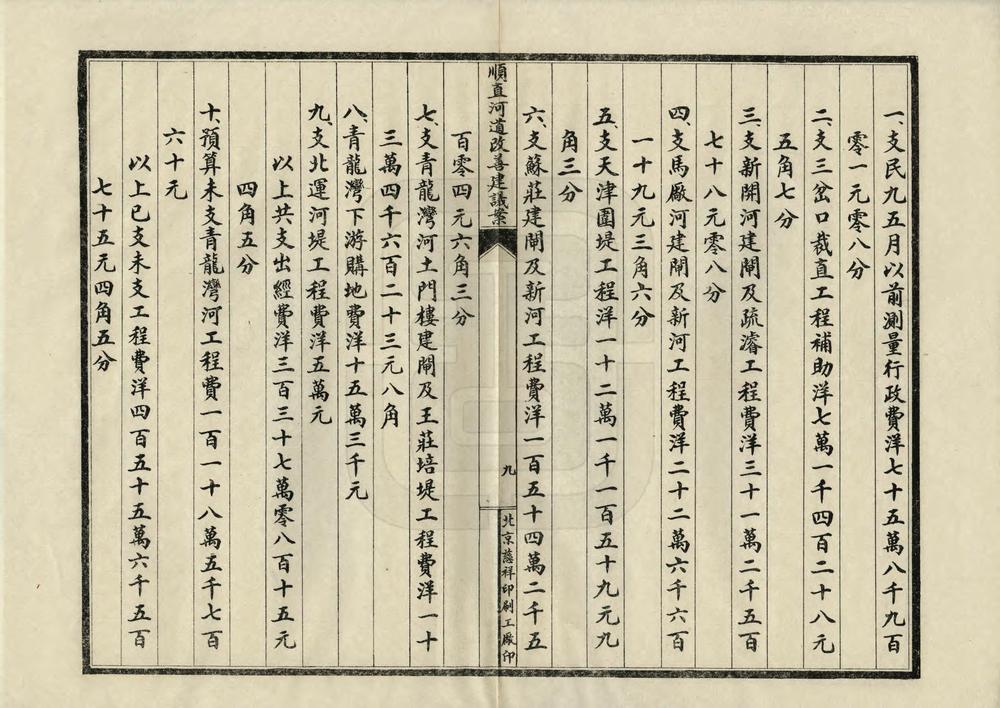 一、支民九五月以前測量行政費洋七十五萬八千九百
零一元零八分
二、支三岔口裁直工程補助洋七萬一千四百二十八元
五角七分
三、支新開河建閘及疏濬工程費洋三十一萬二千五百
七十八元零八分
四、支馬廠河建閘及新河工程費洋二十二萬六千六百
一十九元三角六分
五、支天津圍堤工程洋一十二萬一千一百五十九元九
角三分
六、支蘇莊建閘及新河工程費洋一百五十四萬二千五
順直河道改善建議案
九
北京慈祥印刷工廠印
百零四元六角三分
七、支青龍灣河土門樓建閘及王莊培堤工程費洋一十
三萬四千六百二十三元八角
八、青龍灣下游購地費洋十五萬三千元
九、支北運河堤工程費洋五萬元
以上共支出經費洋三百三十七萬零八百十五元
四角五分
十、預算未支青龍灣河工程費一百一十八萬五千七百
六十元
以上已支未支工程費洋四百五十五萬六千五百
七十五元四角五分